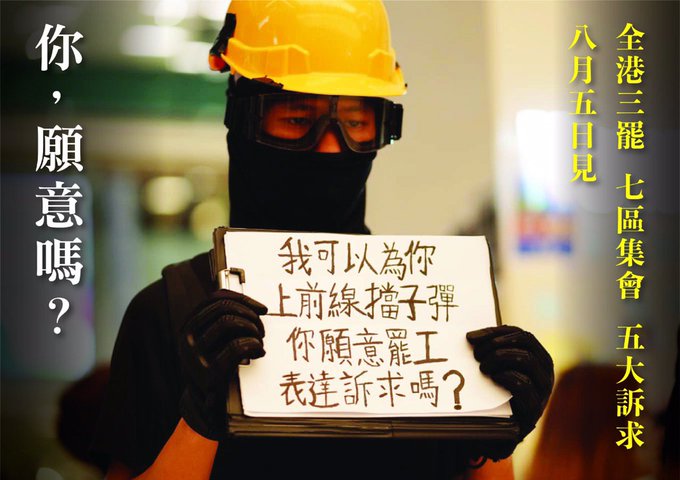 全港三罷 七區集會 五大訴求
八月五日見
你，願意嗎？
我可以為你
上前線擋子彈
你願意罷工
表達訴求嗎？